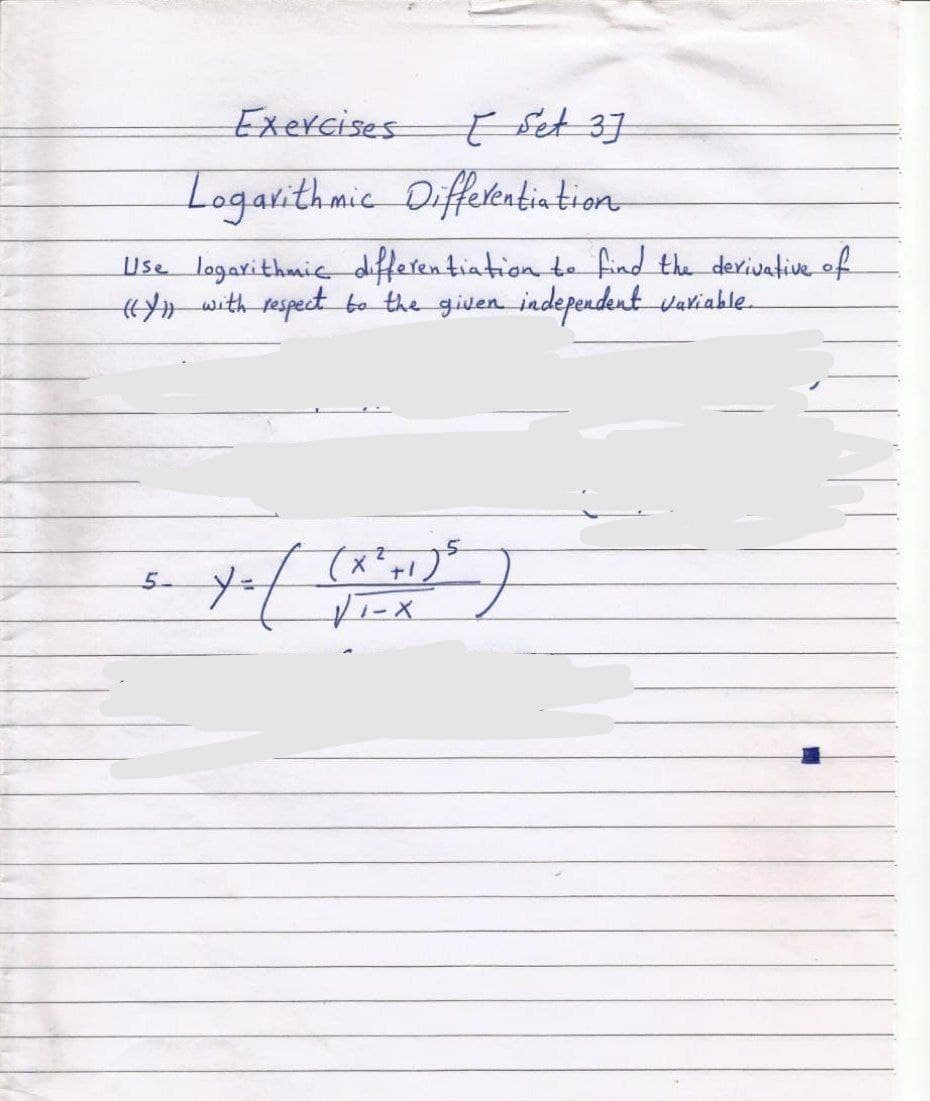 Exercises [ Set 3]
Logarithmic Differentiation
Use logarithmic differentiation to find the derivative of
((y)) with respect to the given independent variable.
5- y=( (x²+1)⁵ / √1-x )